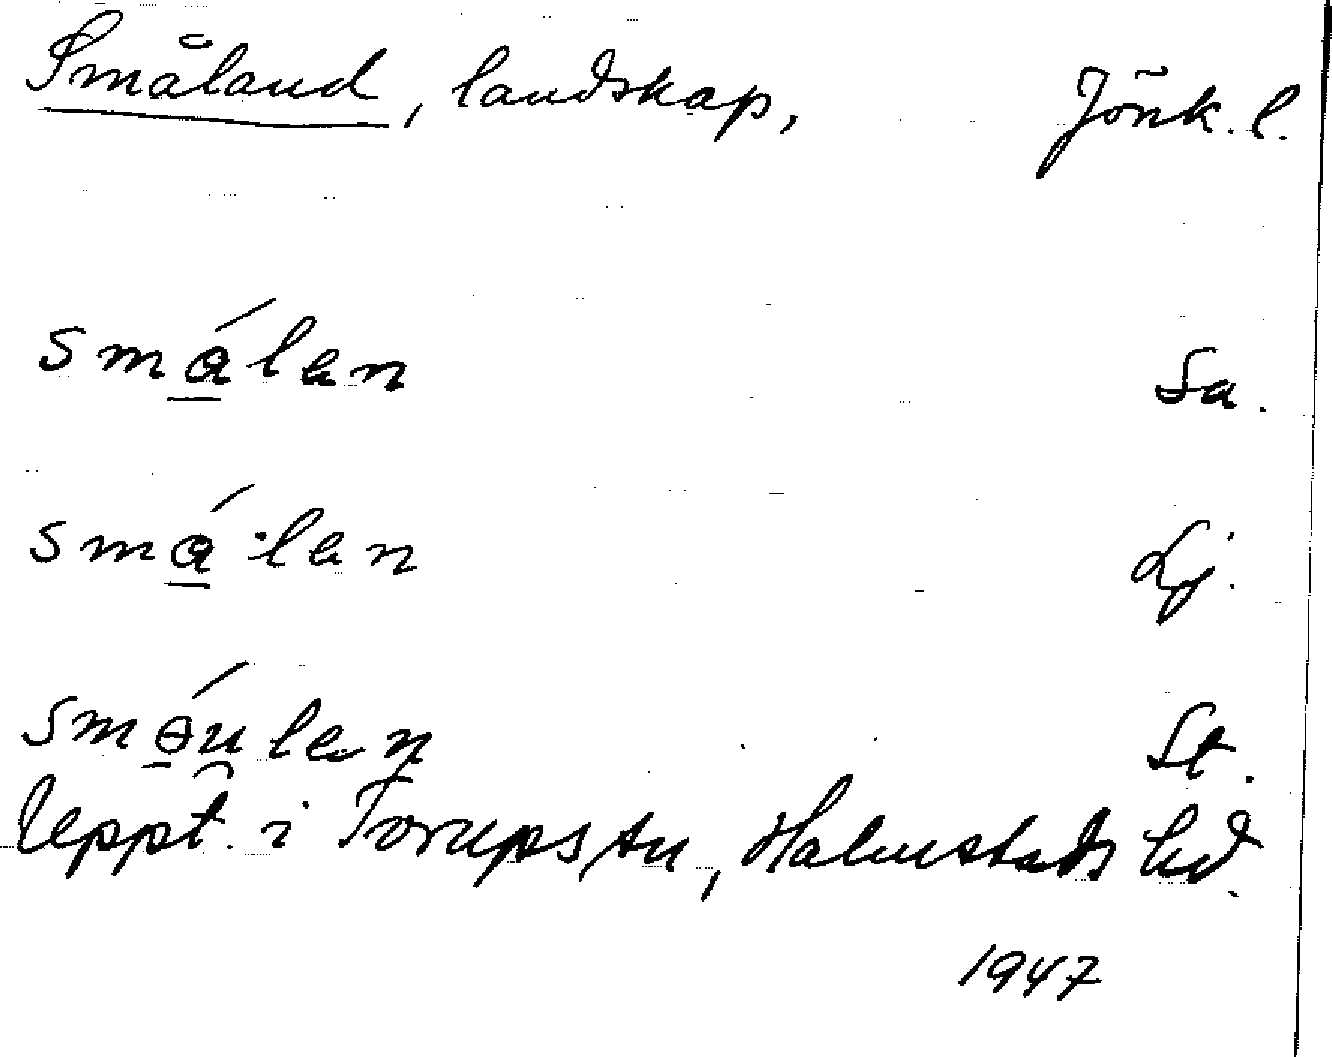 Småland, landskap, Jönk. l.
smålan Sa.
små·lan Lj.
sməulan St.
Uppt. i Torups sn, Halmstads hd.
1947